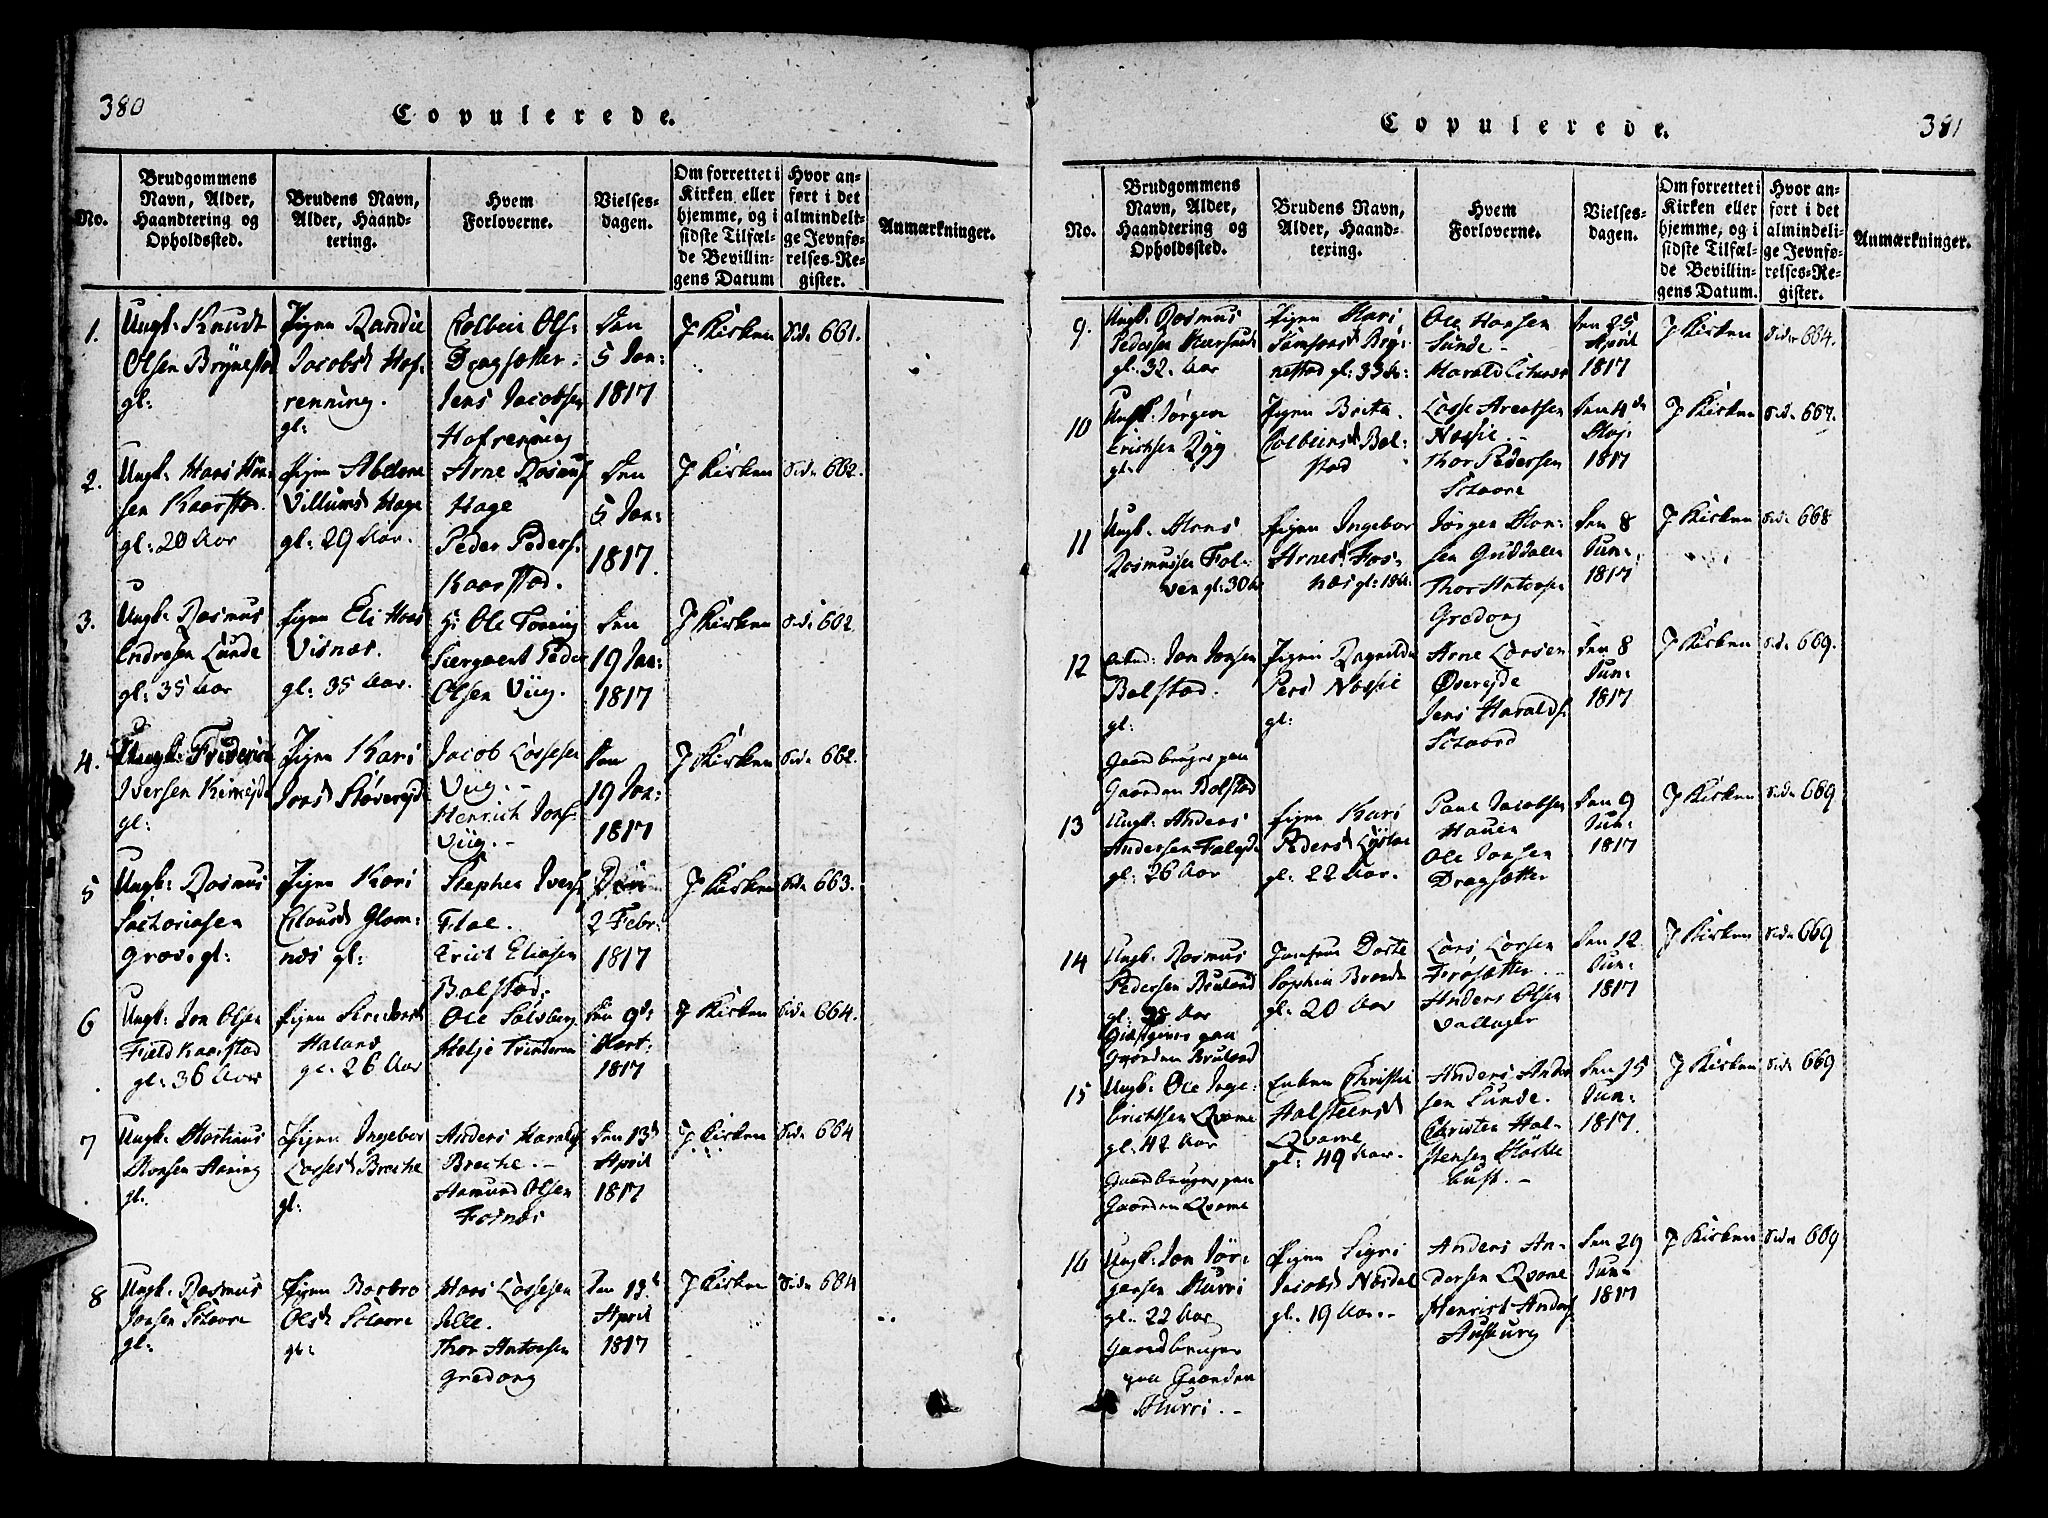 380
Copulerede.
No.
Brudgommens Navn, Alder, Haandtering og Opholdssted.
Brudens Navn, Alder, Haandtering.
Hvem Forloverne.
Vielsesdagen.
Om forrettet i Kirken eller hjemme, og i sidste Tilfælde Bevillingens Datum
Hvor anført i det almindelige Jevnførelses-Register.
Anmærkninger.
1.
Ungk: Knudt
Olsen Brynestad
gl:
Pigen Randie
Jacobsd Hof-
renning.
gl:
Colbein Ols:
Dragsætter.
Jens Jacobsen
Hofrenning
den
5 Jan:
1817
J Kirken
Side 661.
2.
Ungk: Hans Han-
sen Kaarstad.
gl: 20 Aar
Pigen Abelone
Villumsd Hage
gl: 29 Aar.
Arne Rasmus
Hage
Peder Peders.
Kaarstad.
den
5 Jan:
1817.
J Kirken
Side 662.
3.
Ungk: Rasmus
Endresen Lunde
gl: 35 Aar
Pigen Eli Hans
Visnæs.
gl: 35 Aar.
Hr Ole Toning
Siergaent Peder
Olsen Viig.
den
19 Jan:
1817
J Kirken
Side 662.
4.
Ungk: Friderich
Iversen Kirkejde
gl:
Pigen Kari
Jonsd Støverejde
Jacob Lassesen
Viig. -
Henrich Jons:
Viig. -
den
19 Jan:
1817
J Kirken
Side 662.
5
Ungk: Rasmus
Sachariasen
Grov. gl:
Pigen Kari
Clausd Glom-
næs gl:
Stephen Ivers:
Flae.
Erich Eliasen
Balstad.
Den
2 Febr:
1817
J Kirken
Side 663.
6
Ungk: Jon Olsen
Field Kaarstad
gl: 36 Aar
Pigen Siri Jensd
Haland
gl: 26 Aar
Ole Solsberg
Helje Trinderen
den 9de
Mart:
1817
J Kirken
Side 664.
7
Ungk: Mathias
Monsen Aaning
gl:
Pigen Ingebor
Lassesd Breche
gl:
Anders Harald
Breche. -
Aamund Olsen
Fosnæs
den 13d
April
1817
J Kirken
Side 664
8
Ungk: Rasmus
Jonsen Schaare
gl:
Pigen Barbro
Olsd Schaare
gl:
Hans Lassesen
Jelle.
Thor Antonsen
Gredong
den 13d
April
1817
J Kirken
Side 664
381
Copulerede.
No.
Brudgommens Navn, Alder, Haandtering og Opholdssted.
Brudens Navn, Alder, Haandtering.
Hvem Forloverne.
Vielsesdagen.
Om forrettet i Kirken eller hjemme, og i sidste Tilfælde Bevillingens Datum.
Hvor anført i det almindelige Jevnførelses-Register.
Anmærkninger.
9.
Ungk: Rasmus
Pedersen
gl: 32. Aar
Pigen Mari
Samsonsd Bry-
nestad gl: 33 Aar
Ole Hansen
Sunde -
Harald
den 25
April
1817
J Kirken
Side 664.
10
Ungk: Jørgen
Erichsen Ryg
gl:
Pigen Brita
Colbeinsd Bal-
stad
Lasse Arentsen
Næssie. -
Thor Pedersen
Schaare
den 4de
Maj:
1817
J Kirken
Side 667.
11
Ungk: Mons
Rasmussen Fol-
ven gl: 30 Aar
Pigen Ingebor
Arnesd Fos-
næs gl: 18 Aar
Jørgen Mon-
sen Guddalen
Thor Antons
Gredong
den 8
Jun:
1817
J Kirken
Side 668
12
Jon Jonsen
Balstad.
gl:
Gaardbruger paa
Gaarden Balstad
Pigen Ragnilda
Persd Næssie
gl:
Arne Larsen
Øverejde
Jens Haralds:
Schaard
den 8
Jun:
1817
J Kirken
Side 669.
13
Ungk: Anders
Andersen Falejde
gl: 26 Aar
Pigen Kari
Pedersd
gl: 22 Aar.
Paul Jacobsen
Hauin
Ole Jansen
Dragsætter
den 9
Jun:
1817
J Kirken
Side 669
14
Ungk: Rasmus
Pedersen Bruland
gl: 35 Aar
Giæstgiver paa
Gaarden Bruland
Jomfrue Dorte
Sophia Brandt
gl: 20 Aar
Lars Larsen
Frøsætter. -
Anders Olsen
Vallager
den 12
Jun:
1817
J Kirken
Side 669
15
Ungk: Ole Inge-
brichtsen Qvame
gl: 42 Aar
Gaardbruger paa
Gaarden Qvame
Enken Christie
Halsteensd
Qvame
gl: 49 Aar.
Anders Ander
sen Lunde.
Christen Hal-
stensen Myckle-
bust. -
den 15
Jun:
1817.
J Kirken
Side 669
16
Ungk: Jon Jør-
gensen Murri
gl: 22 Aar
Gaardbruger
paa Gaarden
Murri. -
Pigen Sigri
Jacobsd Nordal
gl: 19 Aar. -
Anders An-
dersen Qvame
Henrich Anders
Ausburg
den 29
Jun:
1817
J Kirken
Side 669